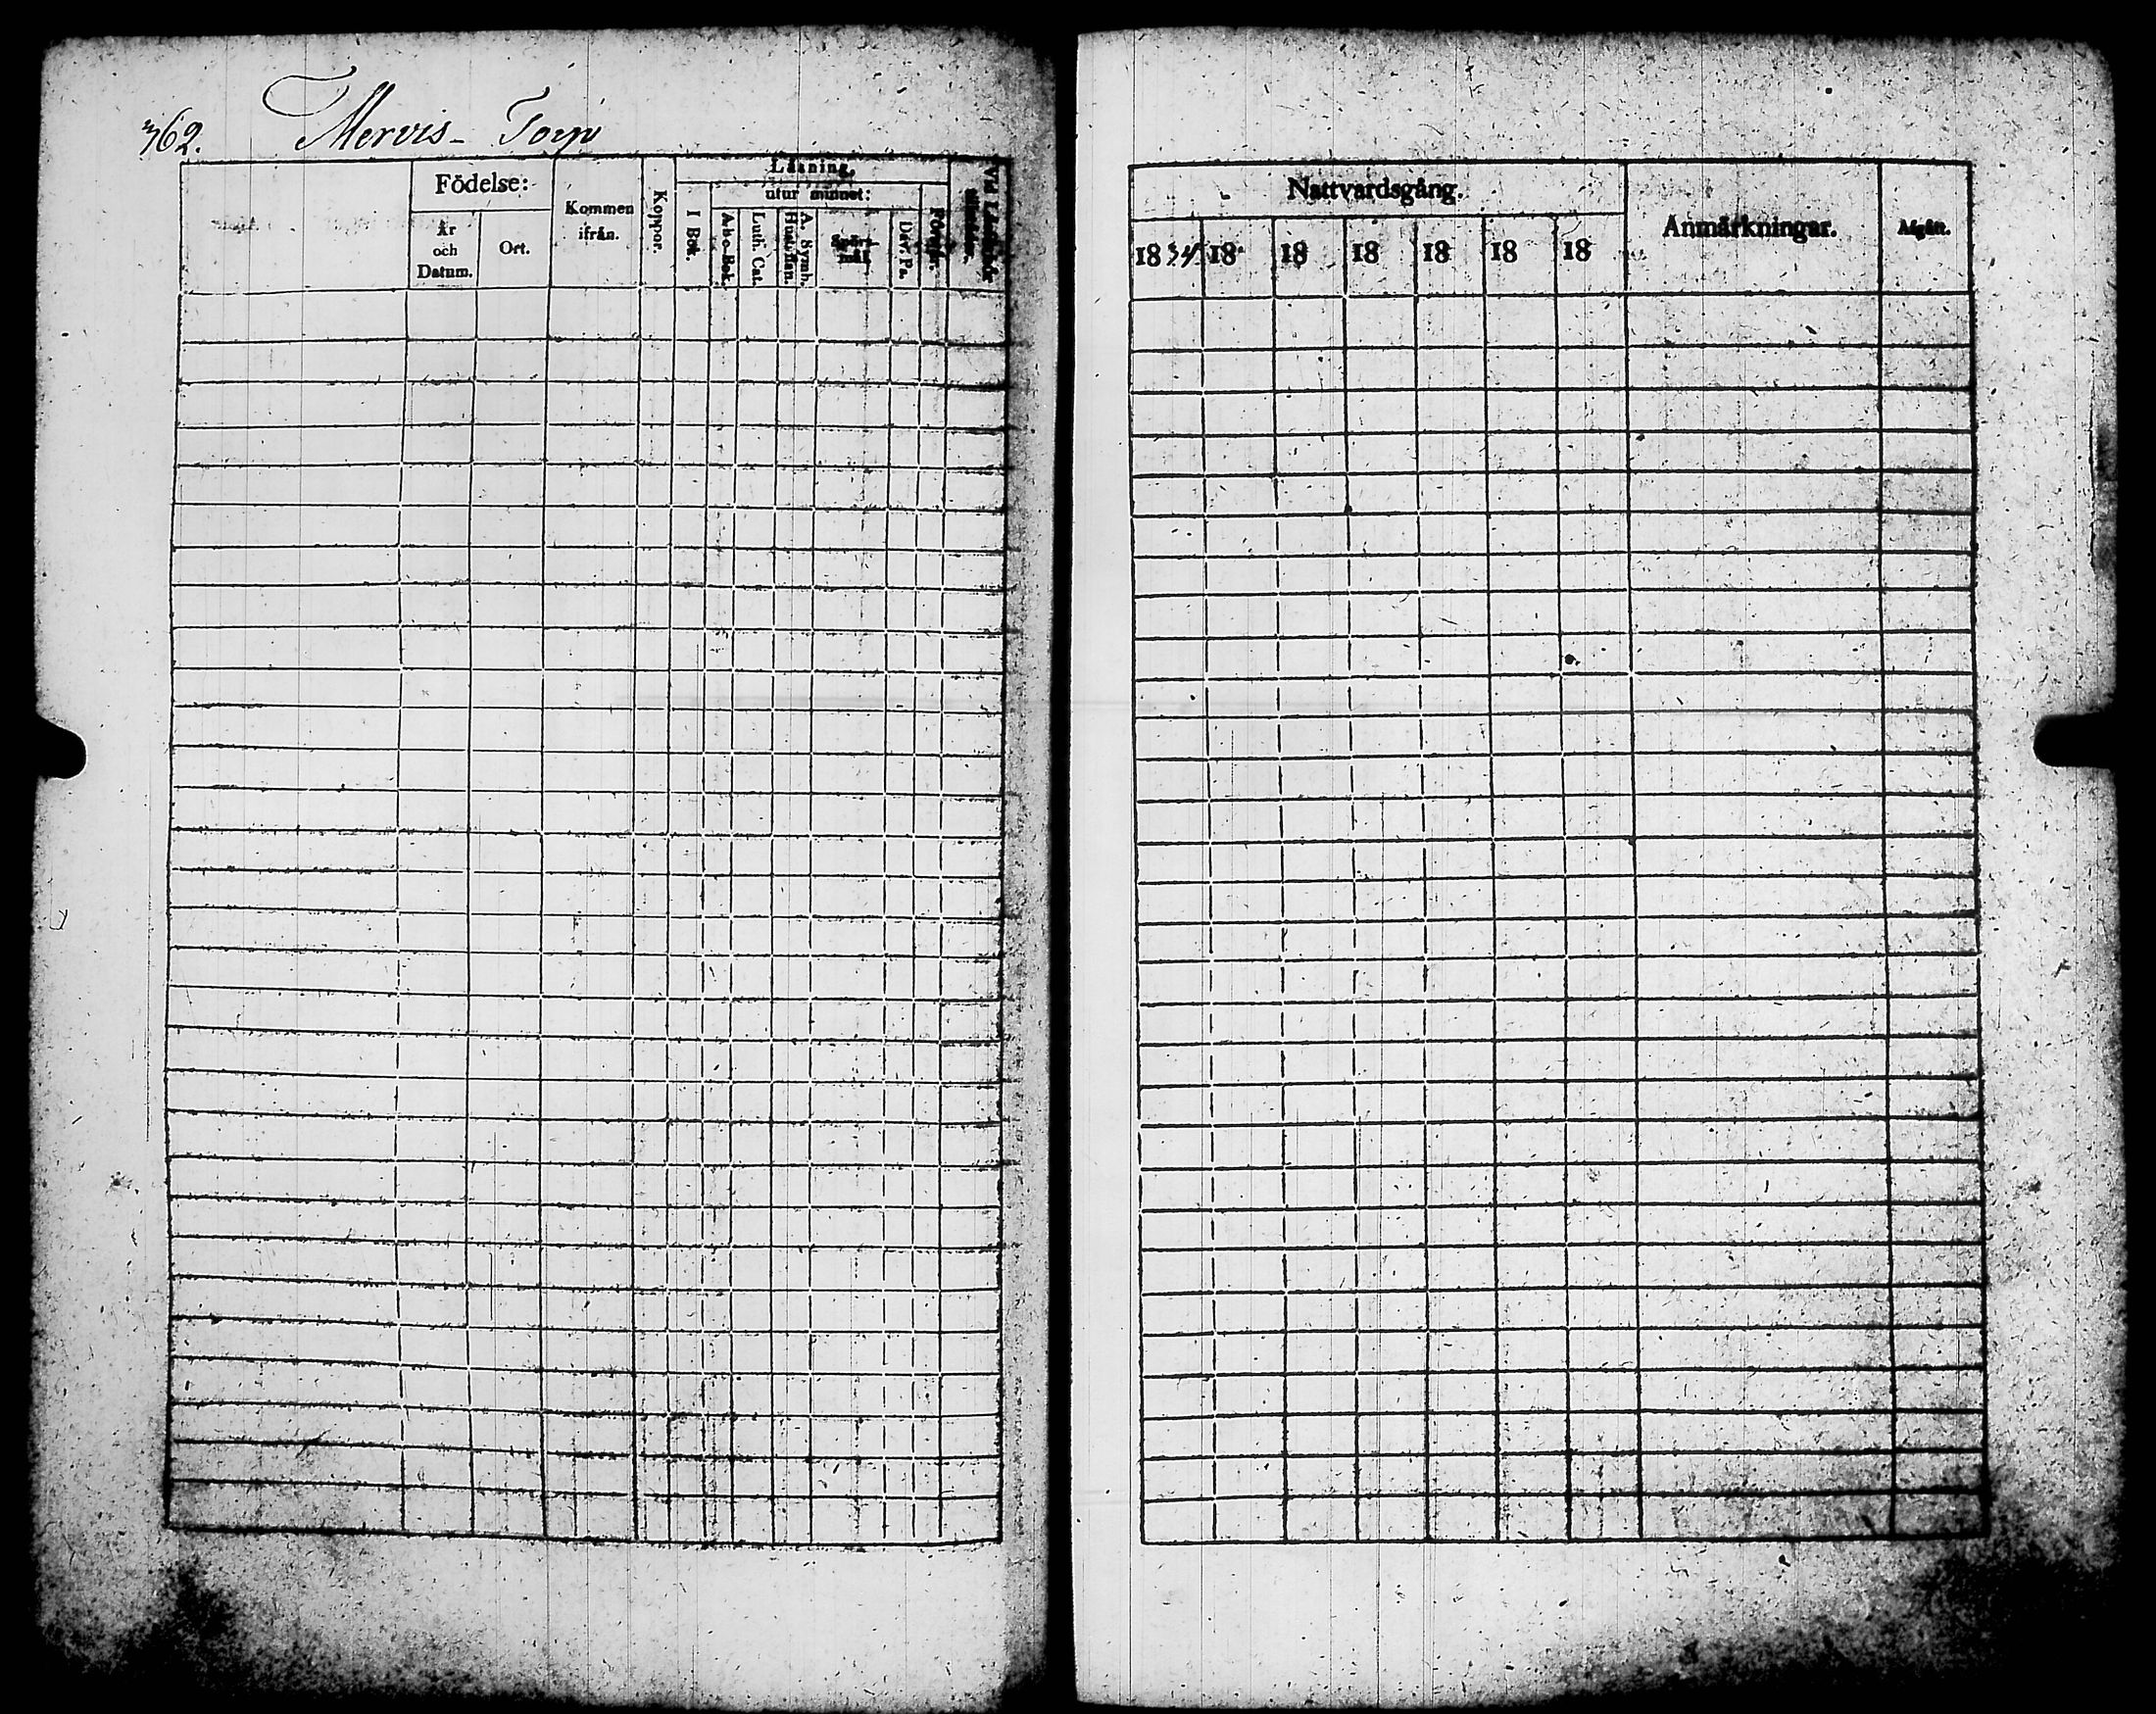 362. Mervis- Torp
Födelse:
År
och
Datum.
Ort.
Kommen
ifrån.
Koppor.
Läsning.
I Bok.
utur minnet:
Abc-Bok.
Luth. Cat.
Hust.
A. Symb.
Spörs-
mål
Dav. Ps.
Vid Läseförhör
Nattvardsgång.
1834 18 18 18 18 18 18
Anmärkningar.
Afgått.